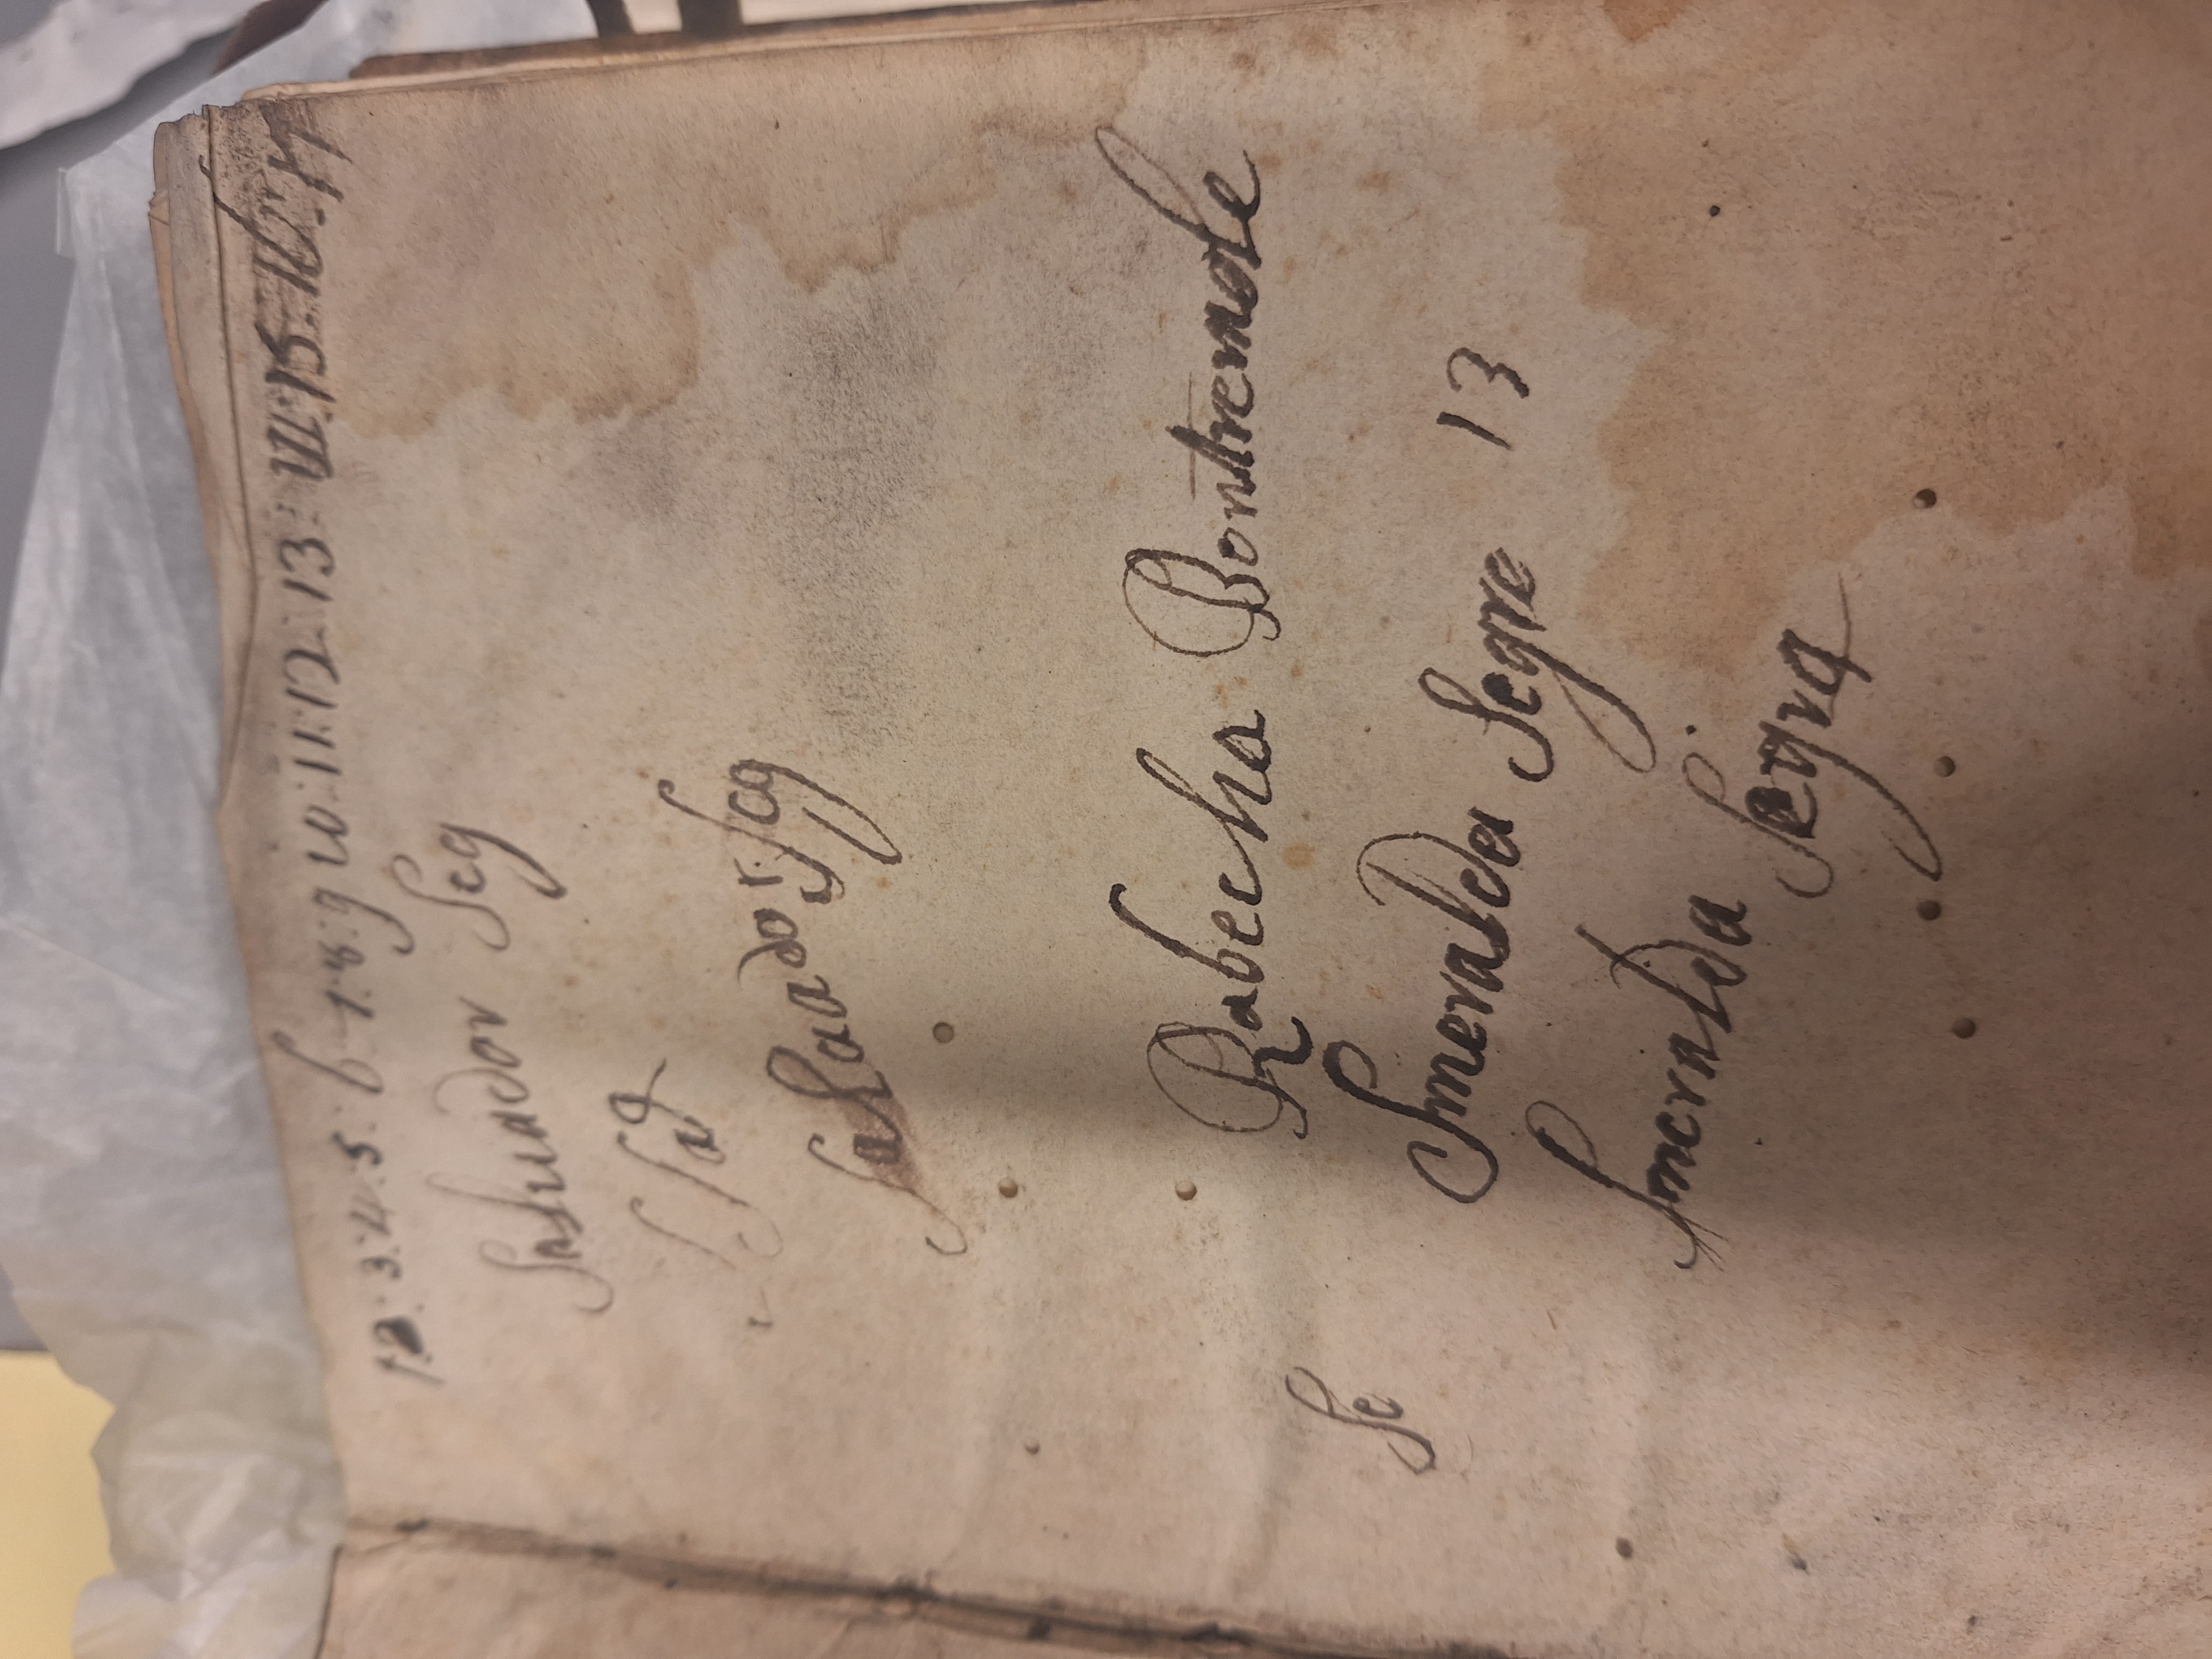 12:3:4:5:6:7:8:9:10:11:12:13:14:15:16:17
Saluador Seg
Sag
Saluador Seg
Rabecha Bontremole
Se
Smeralda Segre 13
Smeralda Segra